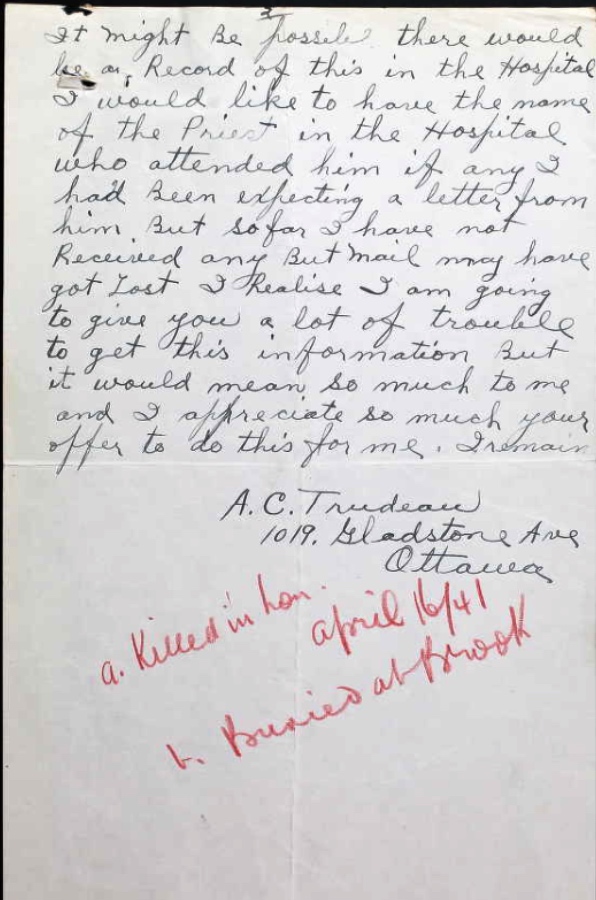 3
It might Be possible there would
be a, Record of this in the Hospital
I would like to have the name
of the Priest in the Hospital
who attended him if any I
had Been expecting a letter from
him But so far I have not
Received any But mail may have
got Lost I Realise I am going
to give you a lot of trouble
to get this information But
it would mean so much to me
and I appreciate so much your
offer to do this for me. I remain
A. C. Trudeau
1019. Gladstone Ave
Ottawa
a. Killed in Lon.
april 16/41
b. Buried at Brook